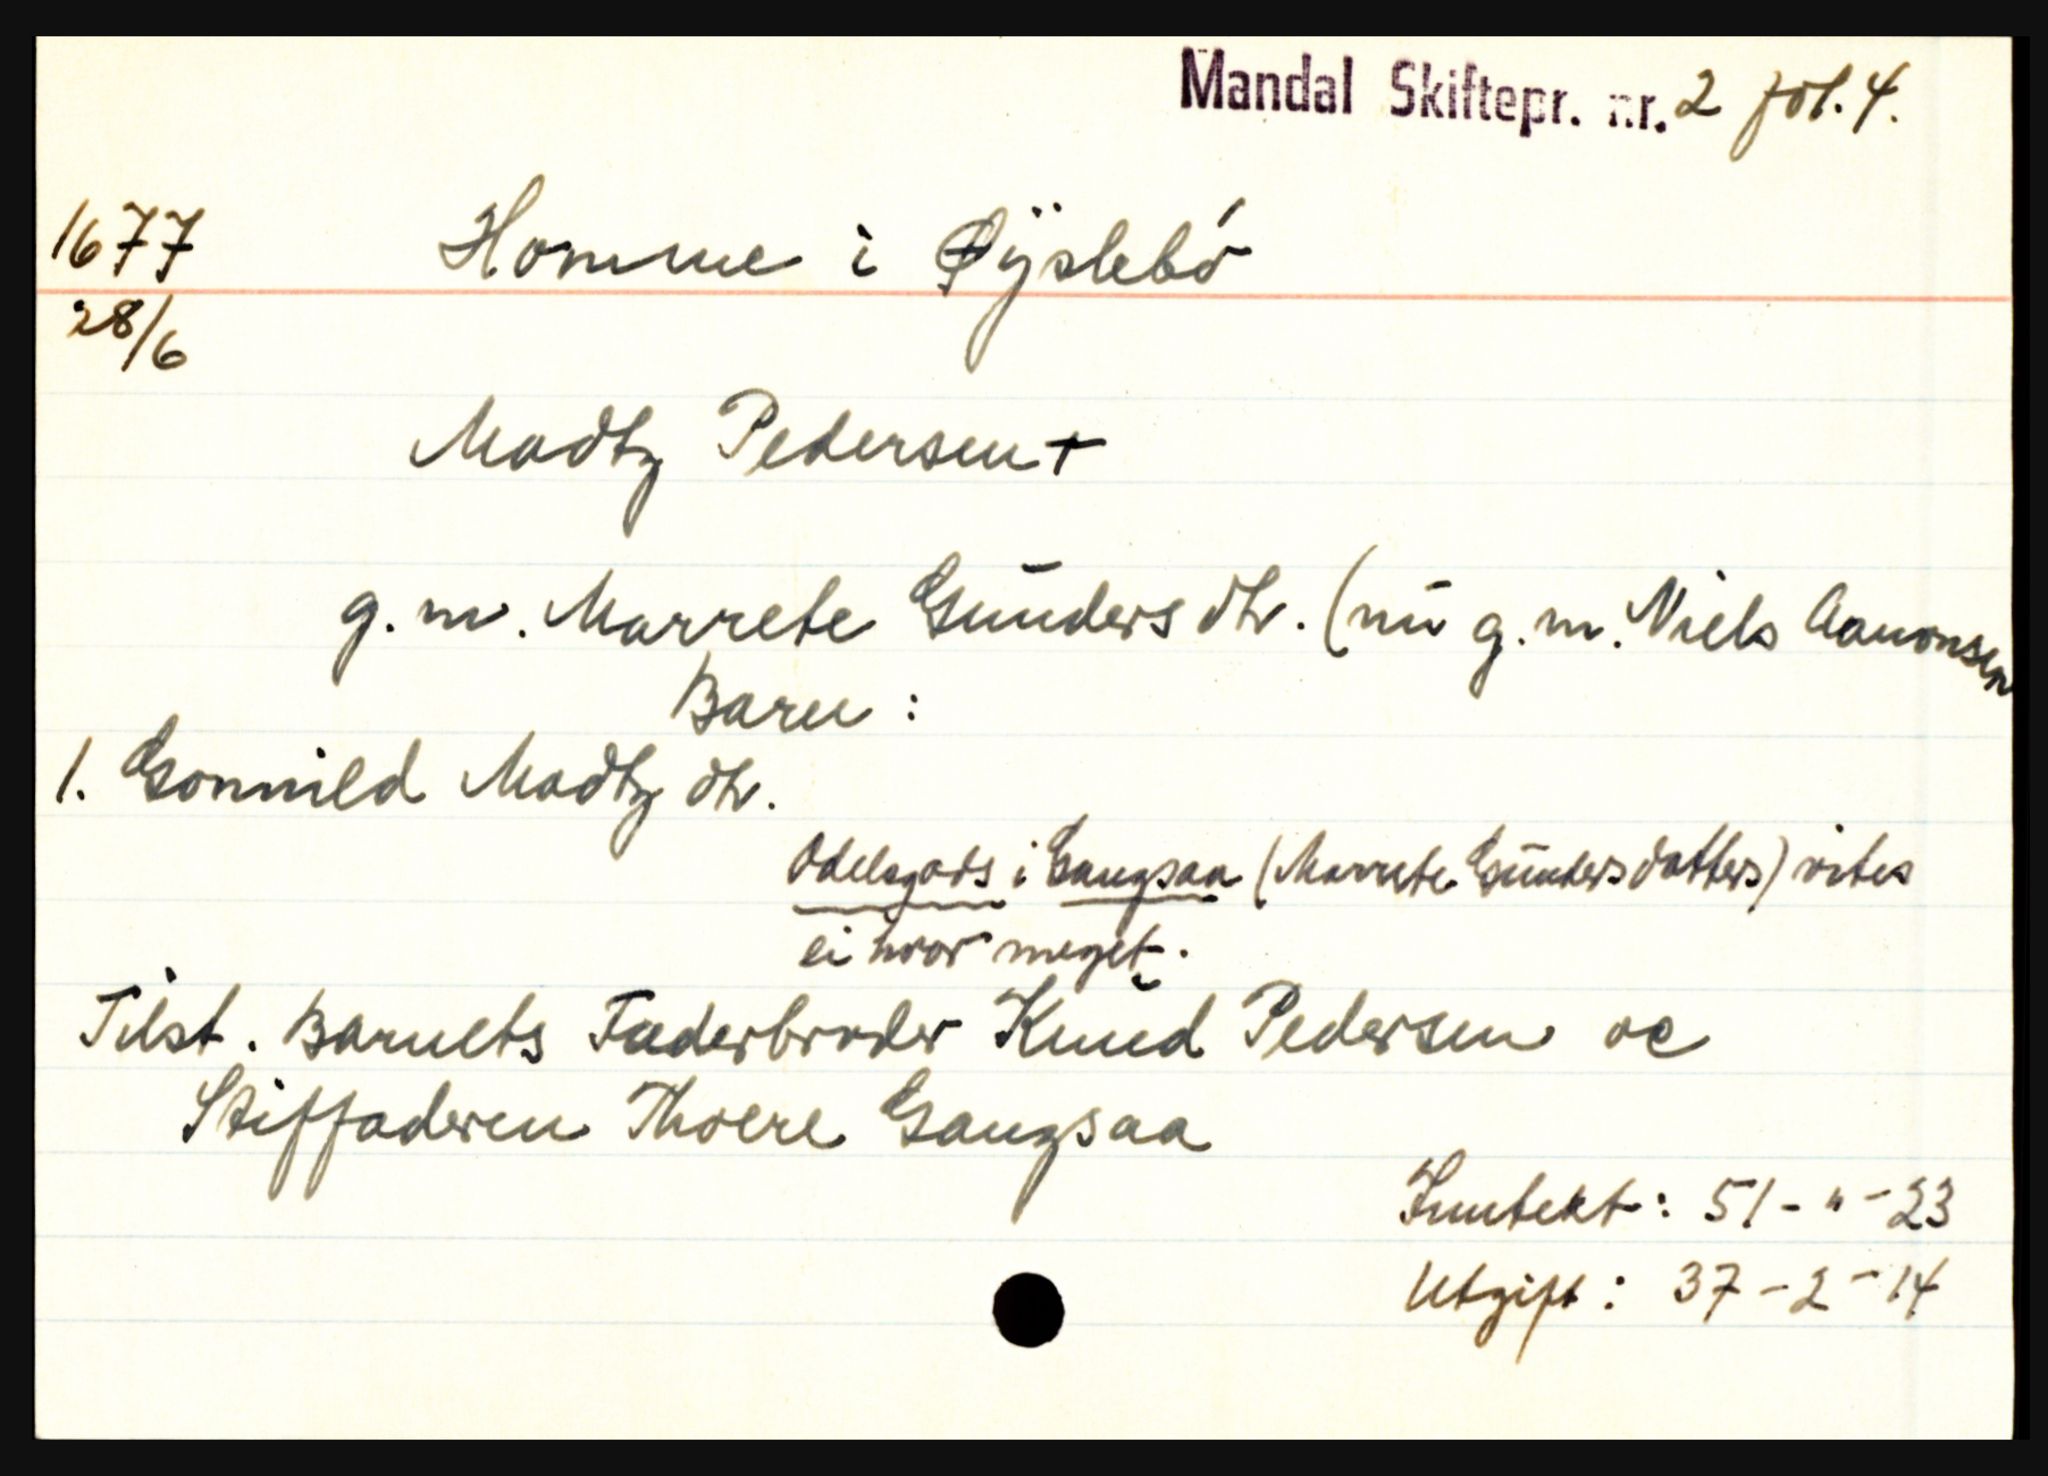 Mandal Skiftepr. nr. 2 fol. 4.
1677 Homme i Øÿslebó
28/6
Madtz Pedersen +
g. m. Marrete Gūnders dtr. (nū g. m. Niels Aanonsen
Barn :
1. Gonnild Madtz dtr.
Odelsgods i Gangsaa (Marrete Gūndersdatters) vites
ei hvor meget.
Tilst. Barnets Faderbroder Knŭd Pedersen oc
Stiffaderen Thoere Gangsaa
Inntekt : 51 - " - 23
Utgift : 37 - 2 - 14